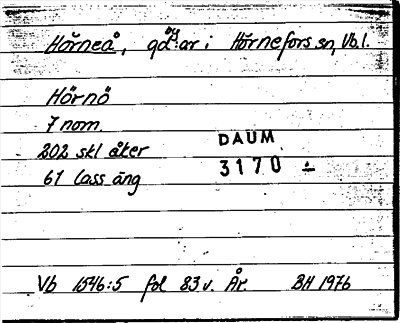 Hörneå, går i Hörnefors sn, Vb.l.
Hörnö
7 nom.
202 skl åker
61 lass äng
DAUM
3170 ÷
Vb 1546:5 fol 83v. År. BH 1976